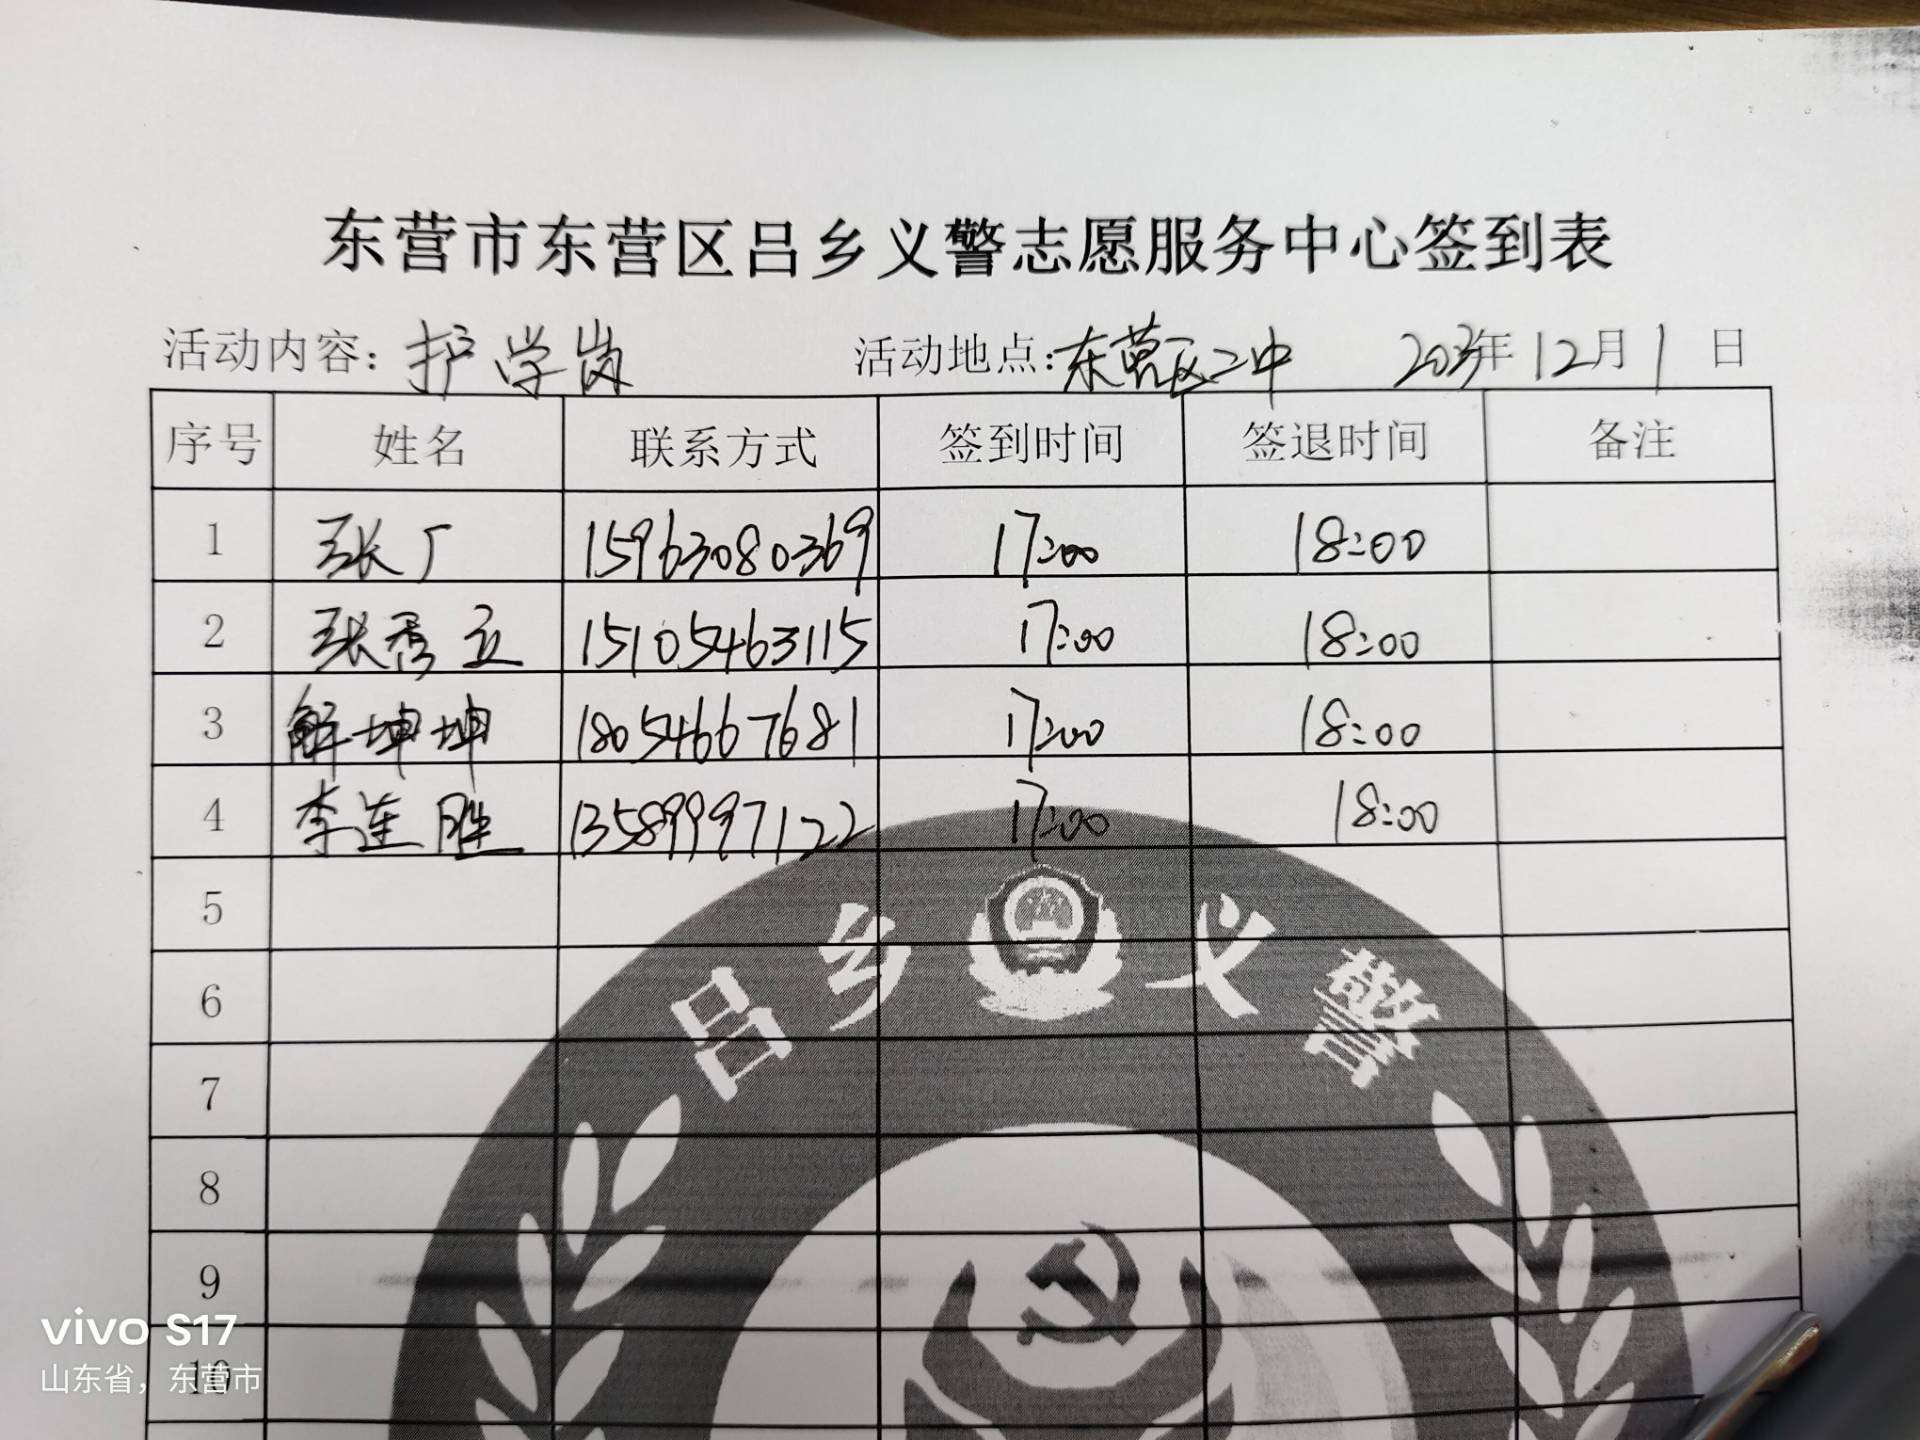 东营市东营区吕乡义警志愿服务中心签到表
活动内容：护学岗 活动地点：东营区二中 2023年12月1日
序号 姓名 联系方式 签到时间 签退时间 备注
1 张广 15963080369 17:00 18:00
2 张秀立 15105463115 17:00 18:00
3 解坤坤 18054667681 17:00 18:00
4 李连胜 13589997122 17:00 18:00
5
6
7
8
9
10
吕乡义警
vivo S17
山东省，东营市